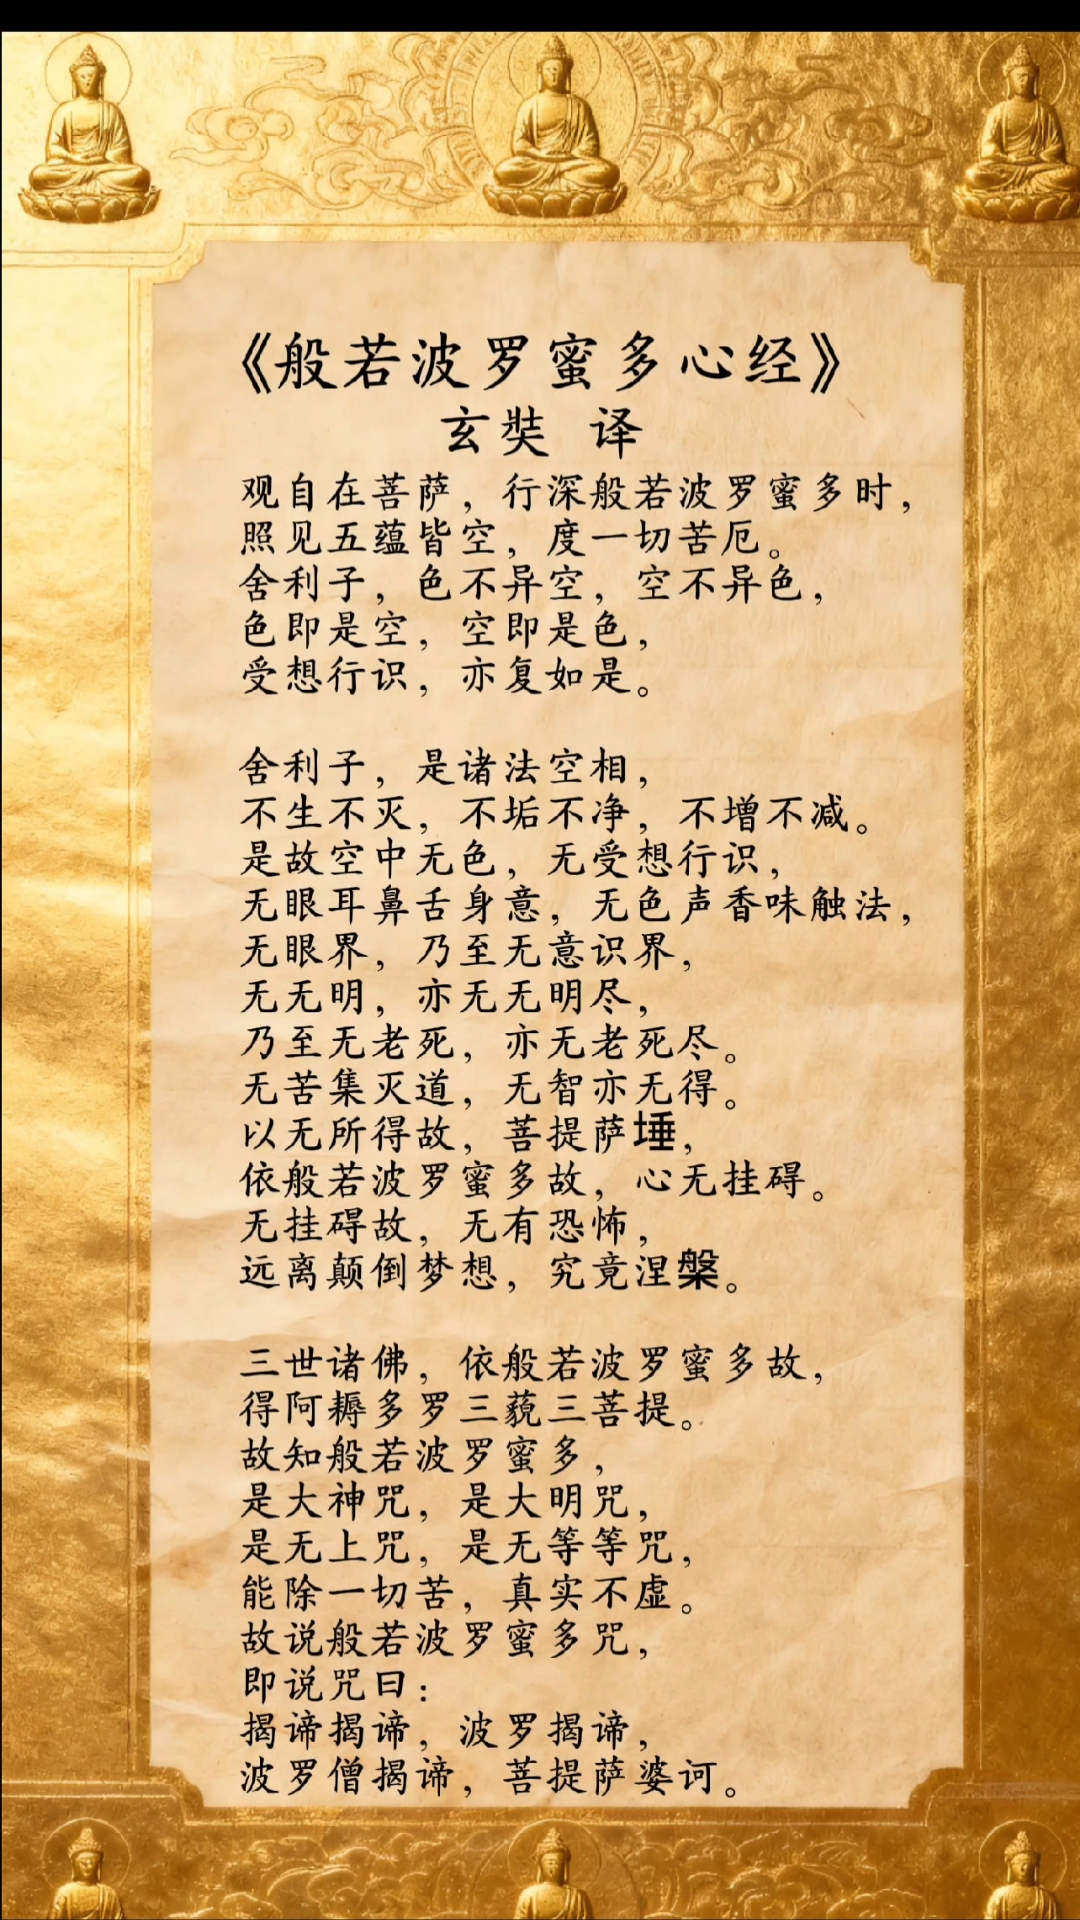 《般若波罗蜜多心经》
玄奘 译
观自在菩萨，行深般若波罗蜜多时，
照见五蕴皆空，度一切苦厄。
舍利子，色不异空，空不异色，
色即是空，空即是色，
受想行识，亦复如是。
舍利子，是诸法空相，
不生不灭，不垢不净，不增不减。
是故空中无色，无受想行识，
无眼耳鼻舌身意，无色声香味触法，
无眼界，乃至无意识界，
无无明，亦无无明尽，
乃至无老死，亦无老死尽。
无苦集灭道，无智亦无得。
以无所得故，菩提萨埵，
依般若波罗蜜多故，心无挂碍。
无挂碍故，无有恐怖，
远离颠倒梦想，究竟涅槃。
三世诸佛，依般若波罗蜜多故，
得阿耨多罗三藐三菩提。
故知般若波罗蜜多，
是大神咒，是大明咒，
是无上咒，是无等等咒，
能除一切苦，真实不虚。
故说般若波罗蜜多咒，
即说咒曰：
揭谛揭谛，波罗揭谛，
波罗僧揭谛，菩提萨婆诃。